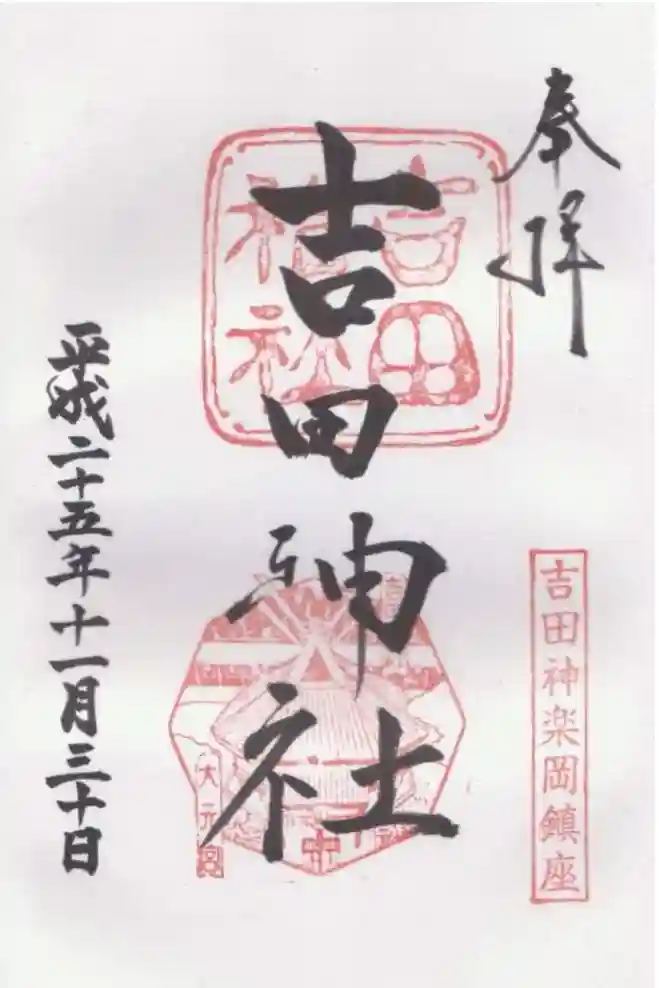 奉拝
吉田神楽岡鎮座
吉田神社
吉田
神社
大元宮
平成二十五年十一月三十日